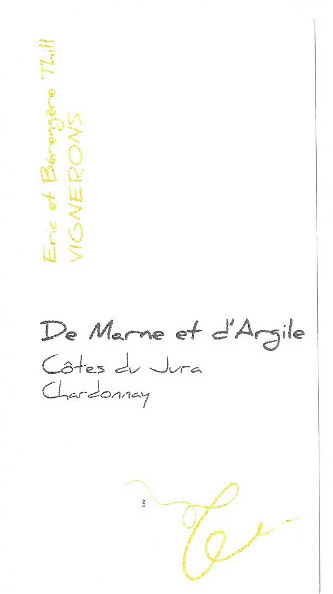 Eric et Bérengère Thill
VIGNERONS
De Marne et d'Argile
Côtes du Jura
Chardonnay